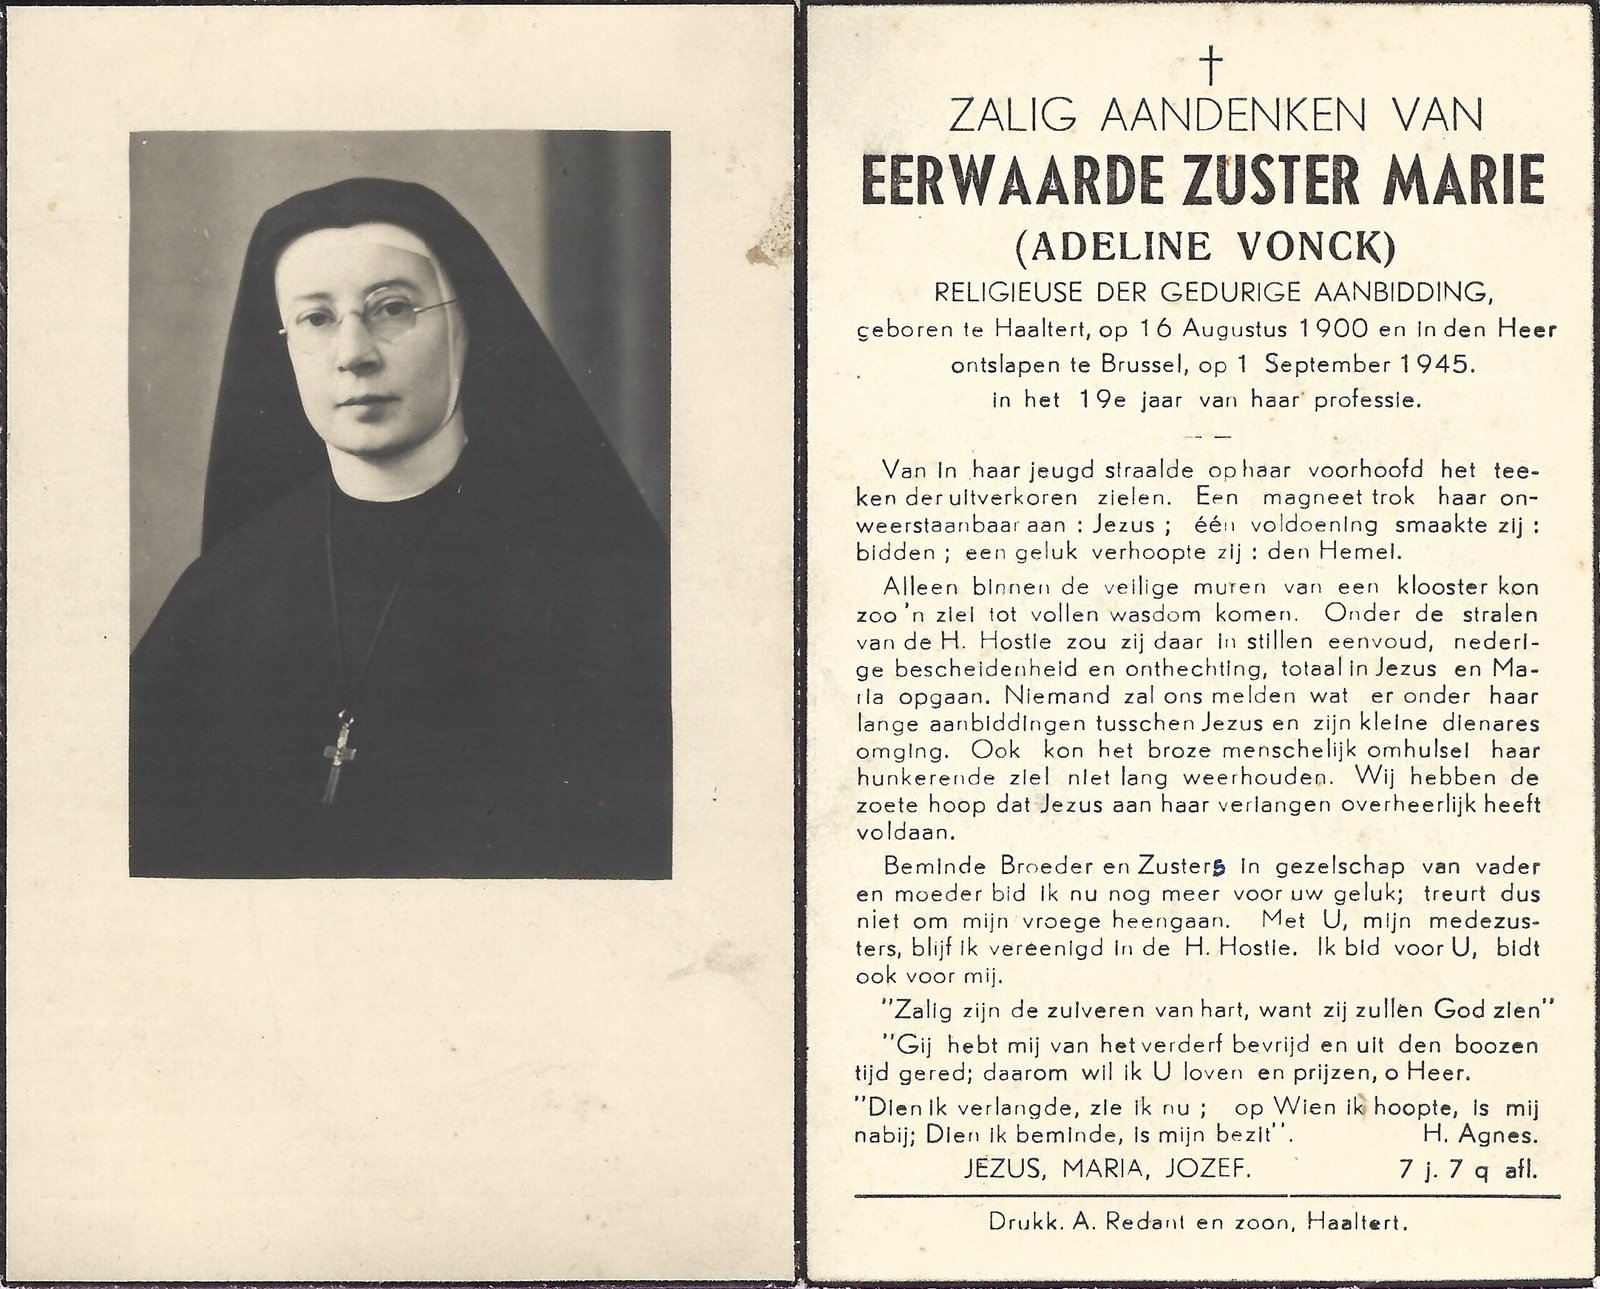 ZALIG AANDENKEN VAN
EERWAARDE ZUSTER MARIE
(ADELINE VONCK)
RELIGIEUSE DER GEDURIGE AANBIDDING,
geboren te Haaltert, op 16 Augustus 1900 en in den Heer
ontslapen te Brussel, op 1 September 1945.
in het 19e jaar van haar professie.
Van in haar jeugd straalde op haar voorhoofd het tee-
ken der uitverkoren zielen. Een magneet trok haar on-
weerstaanbaar aan : Jezus ; één voldoening smaakte zij :
bidden ; een geluk verhoopte zij : den Hemel.
Alleen binnen de veilige muren van een klooster kon
zoo 'n ziel tot vollen wasdom komen. Onder de stralen
van de H. Hostie zou zij daar in stillen eenvoud, nederi-
ge bescheidenheid en onthechting, totaal in Jezus en Ma-
ria opgaan. Niemand zal ons melden wat er onder haar
lange aanbiddingen tusschen Jezus en zijn kleine dienares
omging. Ook kon het broze menschelijk omhulsel haar
hunkerende ziel niet lang weerhouden. Wij hebben de
zoete hoop dat Jezus aan haar verlangen overheerlijk heeft
voldaan.
Beminde Broeder en Zusters in gezelschap van vader
en moeder bid ik nu nog meer voor uw geluk; treurt dus
niet om mijn vroege heengaan. Met U, mijn medezus-
ters, blijf ik vereenigd in de H. Hostie. Ik bid voor U, bidt
ook voor mij.
"Zalig zijn de zuiveren van hart, want zij zullen God zien"
"Gij hebt mij van het verderf bevrijd en uit den boozen
tijd gered; daarom wil ik U loven en prijzen, o Heer.
"Dien ik verlangde, zie ik nu ; op Wien ik hoopte, is mij
nabij; Dien ik beminde, is mijn bezit". H. Agnes.
JEZUS, MARIA, JOZEF. 7 j. 7 q afl.
Drukk. A. Redant en zoon, Haaltert.